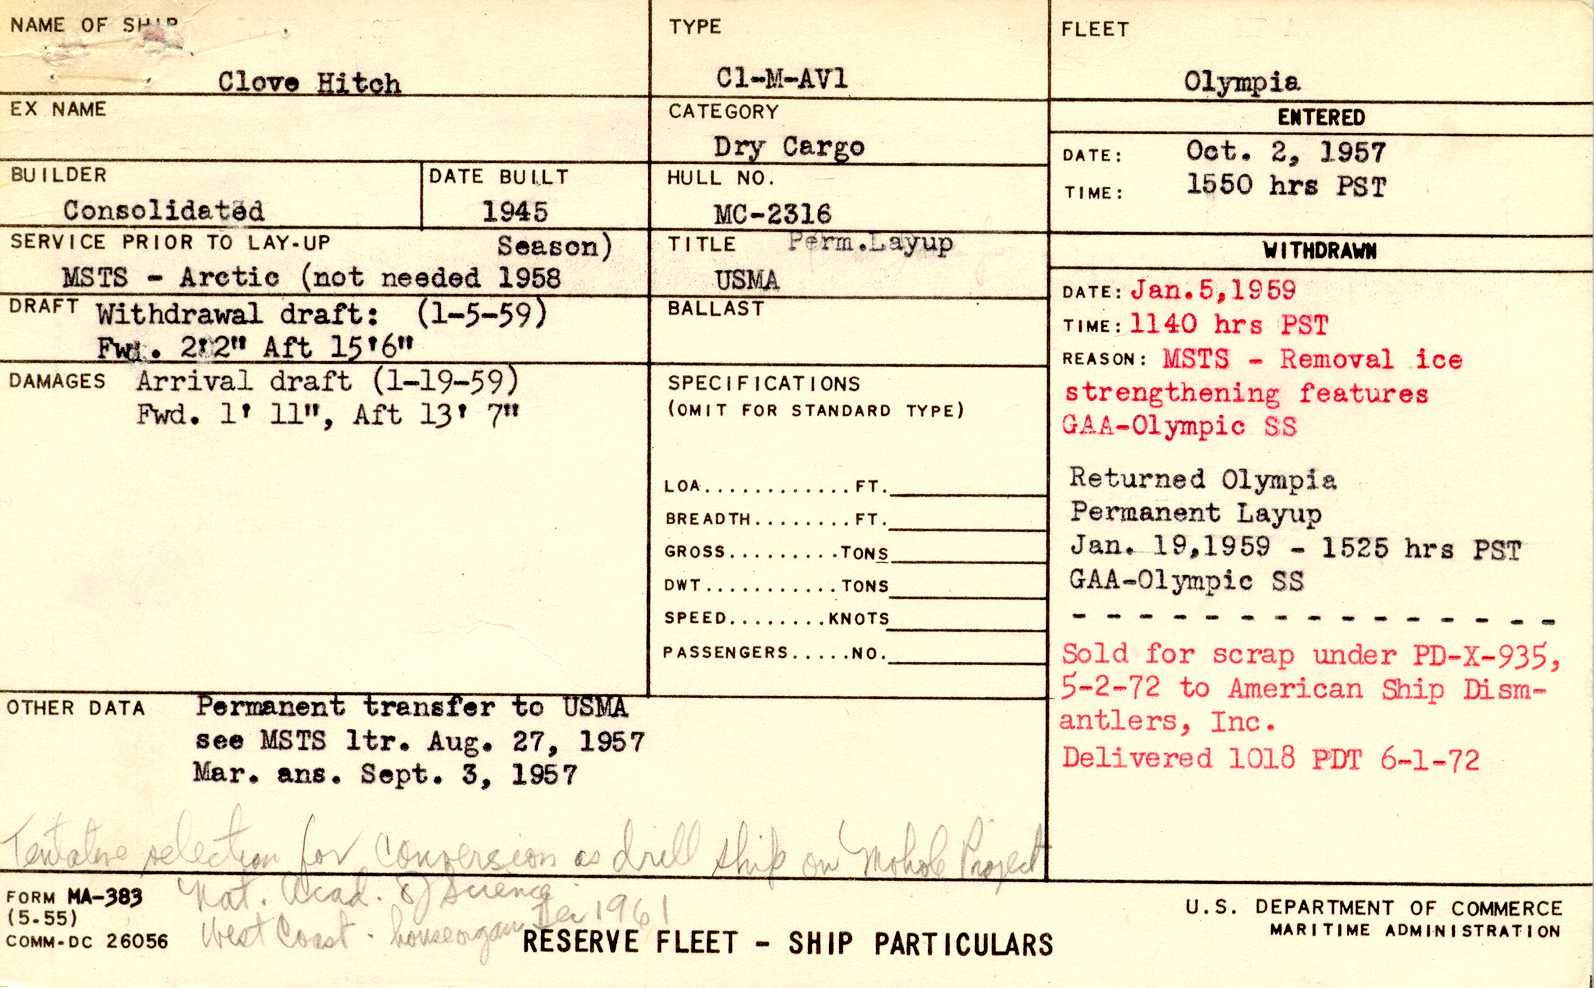 NAME OF SHIP
Clove Hitch
TYPE
C1-M-AV1
FLEET
Olympia
EX NAME
CATEGORY
Dry Cargo
ENTERED
DATE: Oct. 2, 1957
TIME: 1550 hrs PST
BUILDER
Consolidated
DATE BUILT
1945
HULL NO.
MC-2316
SERVICE PRIOR TO LAY-UP Season)
MSTS - Arctic (not needed 1958
TITLE Perm.Layup
USMA
WITHDRAWN
DATE: Jan.5,1959
TIME: 1140 hrs PST
REASON: MSTS - Removal ice
strengthening features
GAA-Olympic SS
Returned Olympia
Permanent Layup
Jan. 19,1959 - 1525 hrs PST
GAA-Olympic SS
- - - - - - - - - - - - - - - -
Sold for scrap under PD-X-935,
5-2-72 to American Ship Dism-
antlers, Inc.
Delivered 1018 PDT 6-1-72
DRAFT Withdrawal draft: (1-5-59)
Fwd. 2'2" Aft 15'6"
BALLAST
DAMAGES Arrival draft (1-19-59)
Fwd. 1' 11", Aft 13' 7"
SPECIFICATIONS
(OMIT FOR STANDARD TYPE)
LOA............FT.
BREADTH........FT.
GROSS.........TONS
DWT...........TONS
SPEED........KNOTS
PASSENGERS.....NO.
OTHER DATA Permanent transfer to USMA
see MSTS ltr. Aug. 27, 1957
Mar. ans. Sept. 3, 1957
Tentative selection for conversion as drill ship on Mohole Project
Nat. Acad. of Science
West Coast - houseorgan Dec 1961
FORM MA-383
(5-55)
COMM-DC 26056
RESERVE FLEET - SHIP PARTICULARS
U.S. DEPARTMENT OF COMMERCE
MARITIME ADMINISTRATION